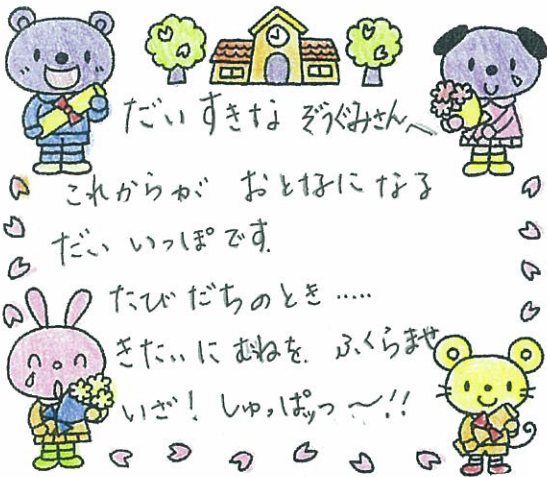 だいすきな ぞうぐみさんへ
これからが おとなになる
だい いっぽです。
たびだちのとき……
きたいに むねを ふくらませ
いざ! しゅっぱっつ〜!!